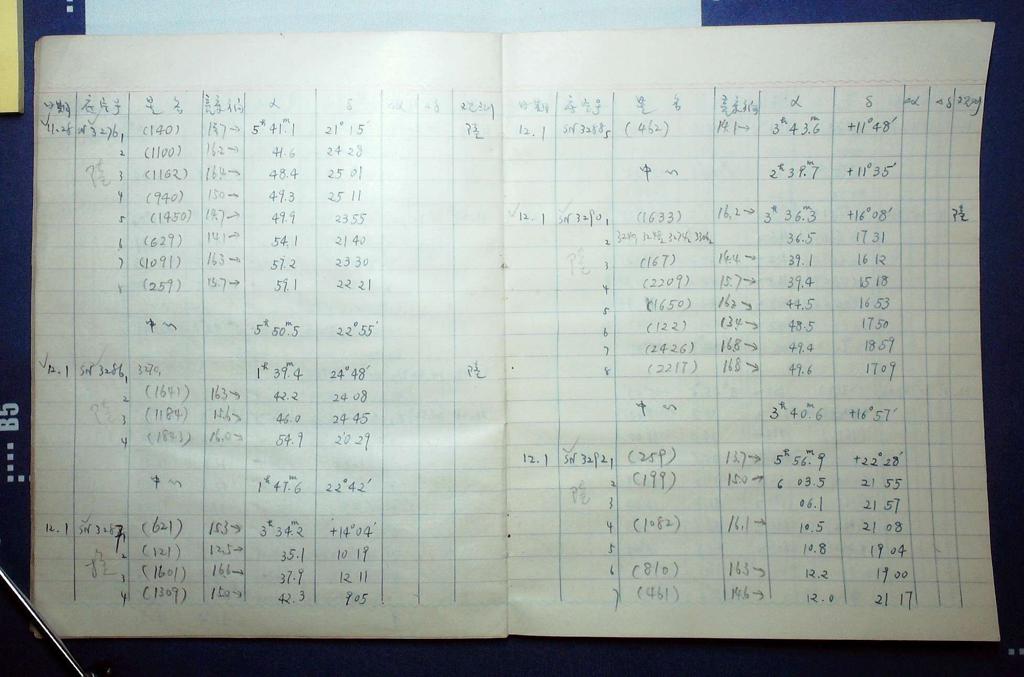 日期 底片号 星名 α δ Δα Δδ
11.28 SN 3276₁ (140) 13.7→ 5ʰ 41ᵐ.1 21° 15′
2 (1100) 16.2→ 41.6 24 28
3 (1162) 16.4→ 48.4 25 01
4 (940) 15.0→ 49.3 25 11
5 (1450) 49.9 23 55
6 (629) 14.1→ 54.1 21 40
7 (1091) 16.3→ 57.2 23 30
(259) 13.7→ 59.1 22 21
中心 5ʰ 50ᵐ.5 22° 55′
12.1 SN 3286₁ 1ʰ 39ᵐ.4 24° 48′
2 (1641) 16.3→ 42.2 24 08
3 (1184) 15.6→ 46.0 24 45
4 (1843) 16.0→ 54.9 20 29
中心 1ʰ 47ᵐ.6 22° 42′
12.1 SN 3287₁ (621) 15.3→ 3ʰ 34ᵐ.2 +14° 04′
2 (121) 12.5→ 35.1 10 19
3 (1601) 16.6→ 37.9 12 11
4 (1309) 15.0→ 42.3 9 05
日期 底片号 星名 α δ Δα Δδ
12.1 SN 3288₅ (462) 14.1→ 3ʰ 43ᵐ.6 +11° 48′
中心 2ʰ 39ᵐ.7 +11° 35′
12.1 SN 3290₁ (1633) 16.2→ 3ʰ 36ᵐ.3 +16° 08′
2 36.5 17 31
3 (167) 14.4→ 39.1 16 12
4 (2209) 15.7→ 39.4 15 18
5 (1650) 44.5 16 53
6 (122) 13.4→ 48.5 17 50
7 (2426) 16.8→ 49.4 18 59
8 (2217) 16.8→ 49.6 17 09
中心 3ʰ 40ᵐ.6 +16° 57′
12.1 SN 3292₁ (259) 13.7→ 5ʰ 56ᵐ.9 +22° 28′
2 (199) 15.0→ 6 03.5 21 55
3 06.1 21 57
4 (1082) 16.1→ 10.5 21 08
5 10.8 19 04
6 (810) 16.3→ 12.2 19 00
7 (461) 14.6→ 12.0 21 17
B5